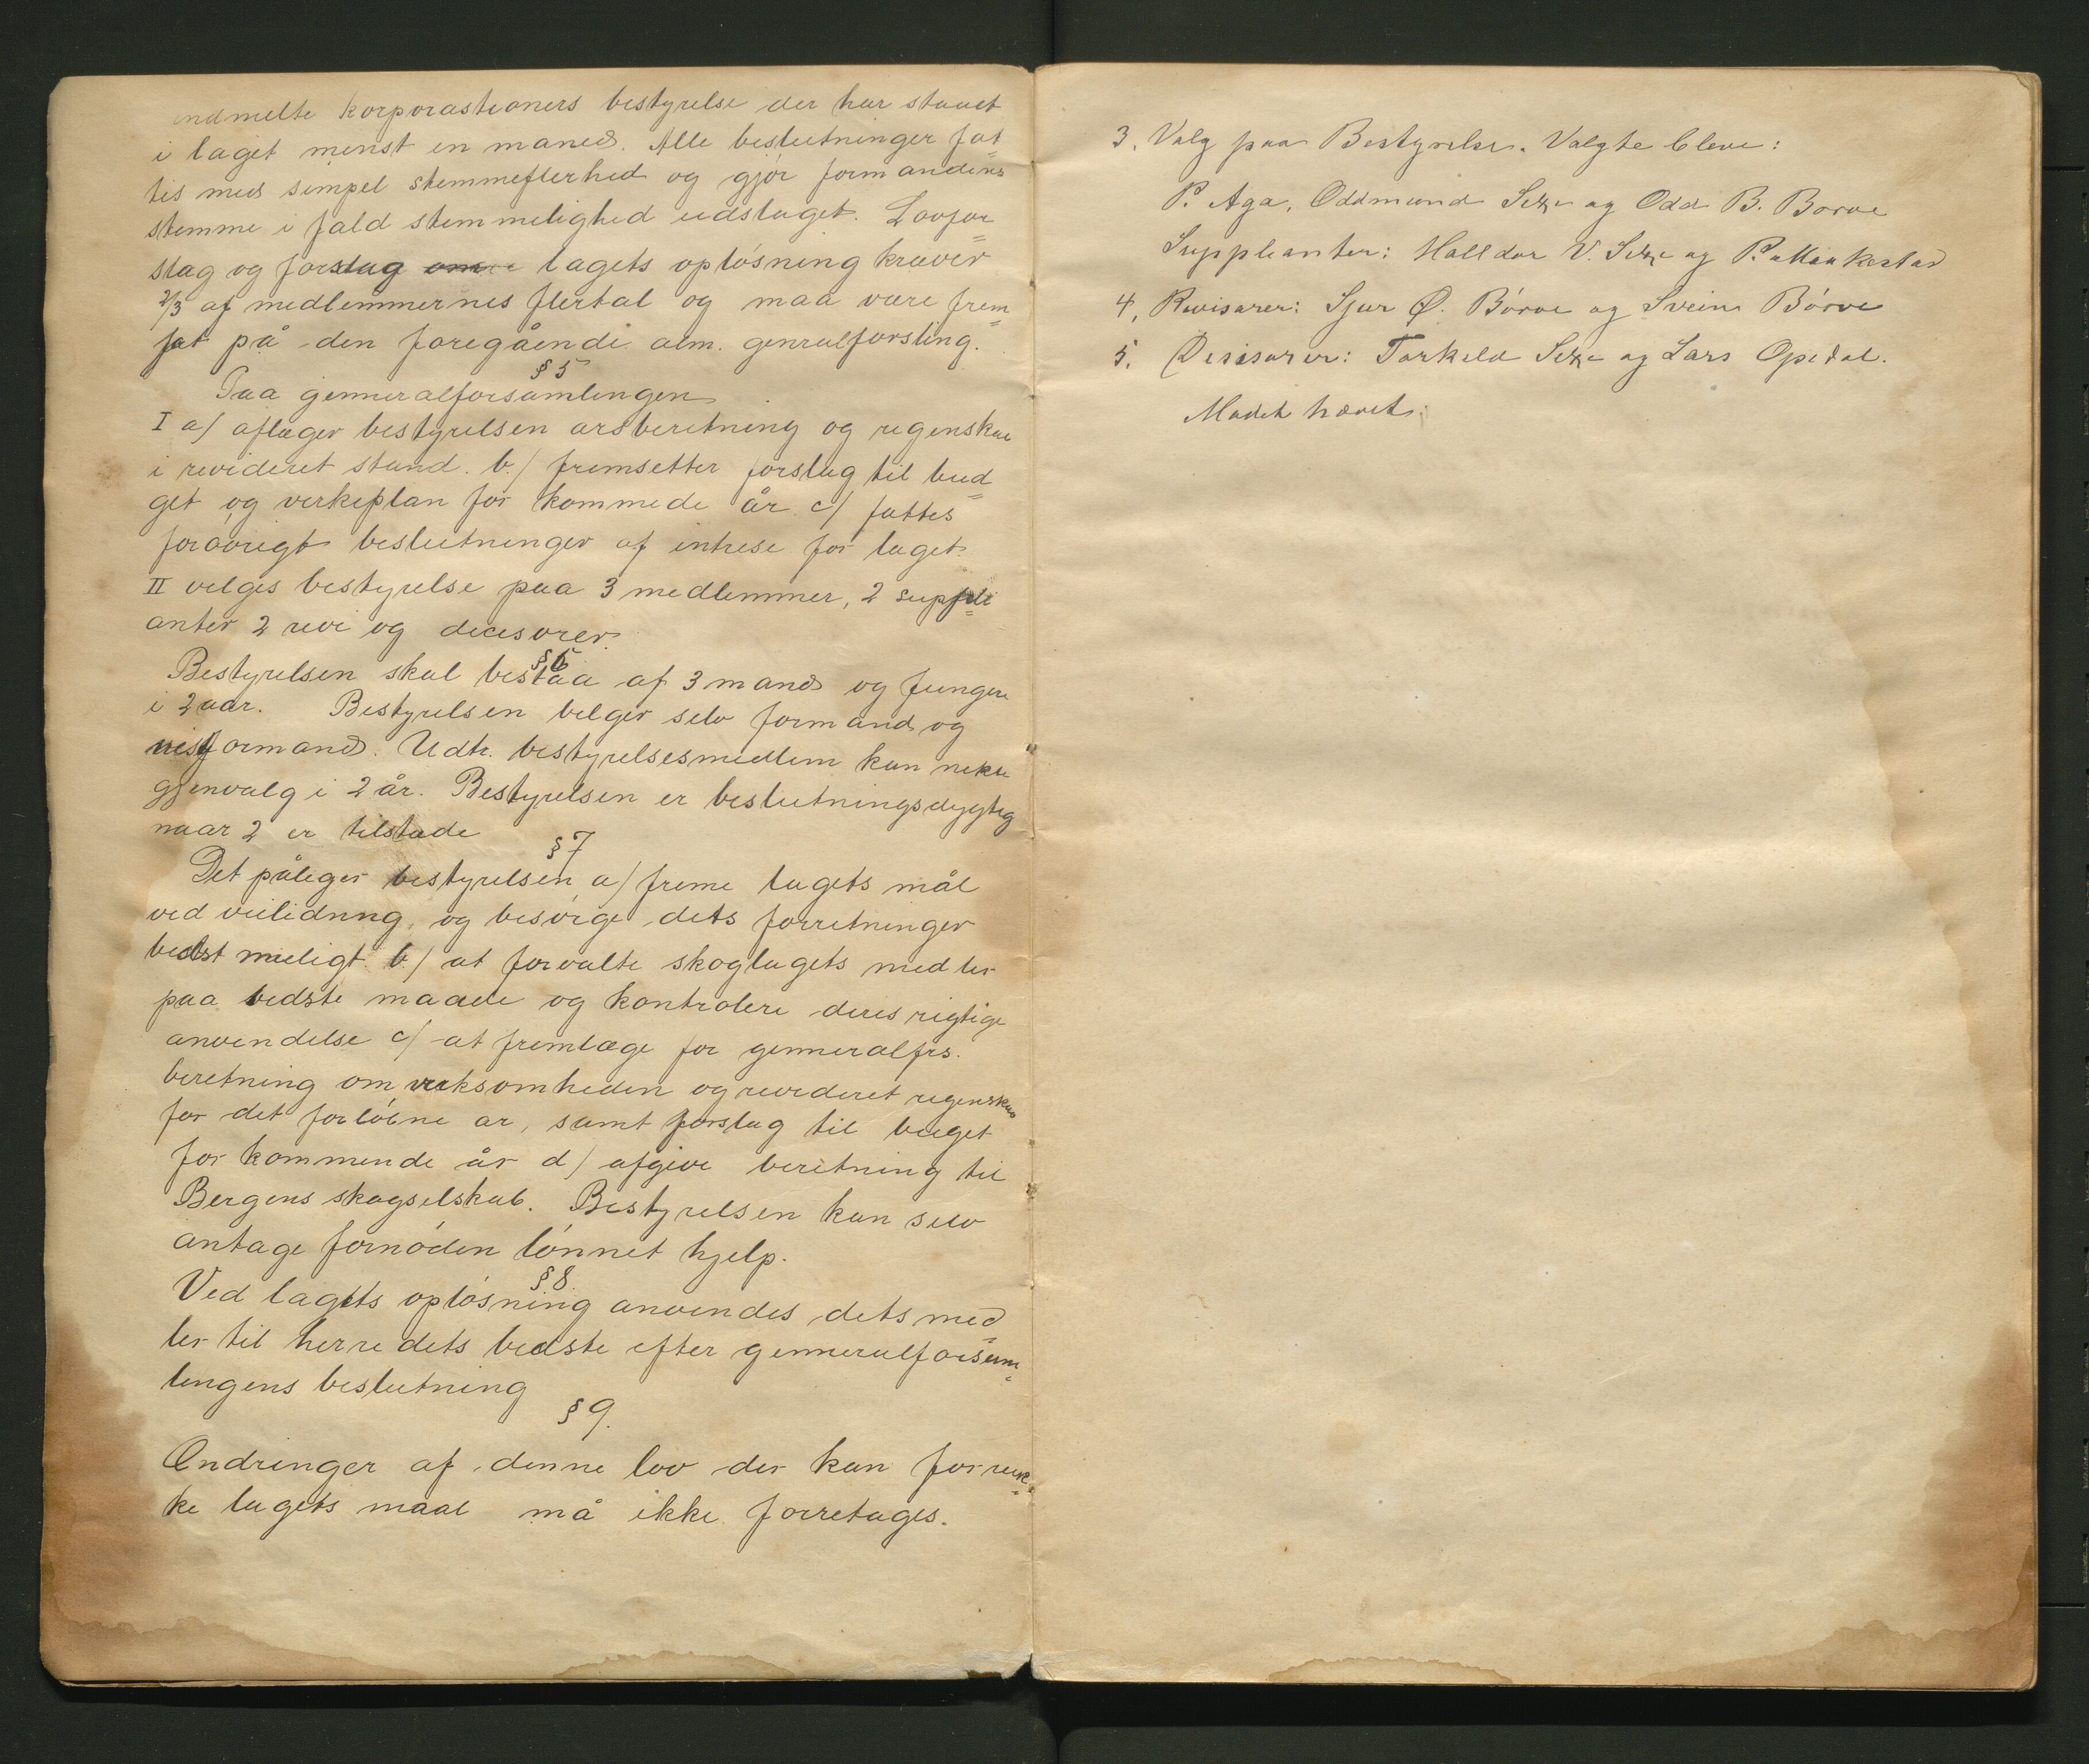 indmelte korporastioners bestyrelse der har staaet
i laget minst en maned. Alle beslutninger fat=
tes med simpel stemmeflerhed og gjör formandens
stemme i fald stemmelighed udslaget. Lovfor=
slag og forslag om lagets oplösning kræver
2/3 af medlemmernes flertal og maa være frem=
sat på den foregåendi alm. genralforsling.
§ 5
Paa genneralforsamlingen
I a/ aflæger bestyrelsen arsberetning og regenskab
i revideret stand. b/ fremsetter forslag til bud=
get og verkeplan for kommede år c/ fattes
foröörigt beslutninger af intrese for laget.
II velges bestyrelse paa 3 medlemmer, 2 suppli=
anter 2 revi og decisorer.
§ 6
Bestyrelsen skal bestaa af 3 mand og fungere
i 2 aar. Bestyrelsen velger selv formand og
visformand. Udtr. bestyrelsesmedlem kan nekte
gjenvalg i 2 år. Bestyrelsen er beslutningsdygtig
naar 2 er tilstæde
§ 7
Det påleger bestyrelsen a/ freme lagets mål
ved veilidnng, og besörge dets forretninger
bedst muligt. b/ at forvalte skoglagets medler
paa bedste maade og kontrolere deres rigtige
anvendelse c/ at fremlæge for genneralfrs.
beretning om verksomheden og revideret regenskab
for det forlöbne ar, samt forslag til buget
for kommende år d/ afgive beretning til
Bergens skogselskab. Bestyrelsen kan selv
antage fornöden lönnet hjelp.
§ 8.
Ved lagets oplösning anvendes dets med=
ler til herredets bedste efter genneralforsam=
lengens beslutning
§ 9.
Ændringer af denne lov der kan forruk=
ke lagets maal må ikke forretages.
3. Valg paa Bestyrelse. Valgte bleve:
P. Aga, Oddmund Sexe og Odd B. Børve
Suppleanter: Halldor V. Sexe og P.
4, Revisorer: Sjur Ø. Börve og Svein Börve
5. Desisorer: Torkeld Sexe og Lars Opedal.
Mødet hævet.